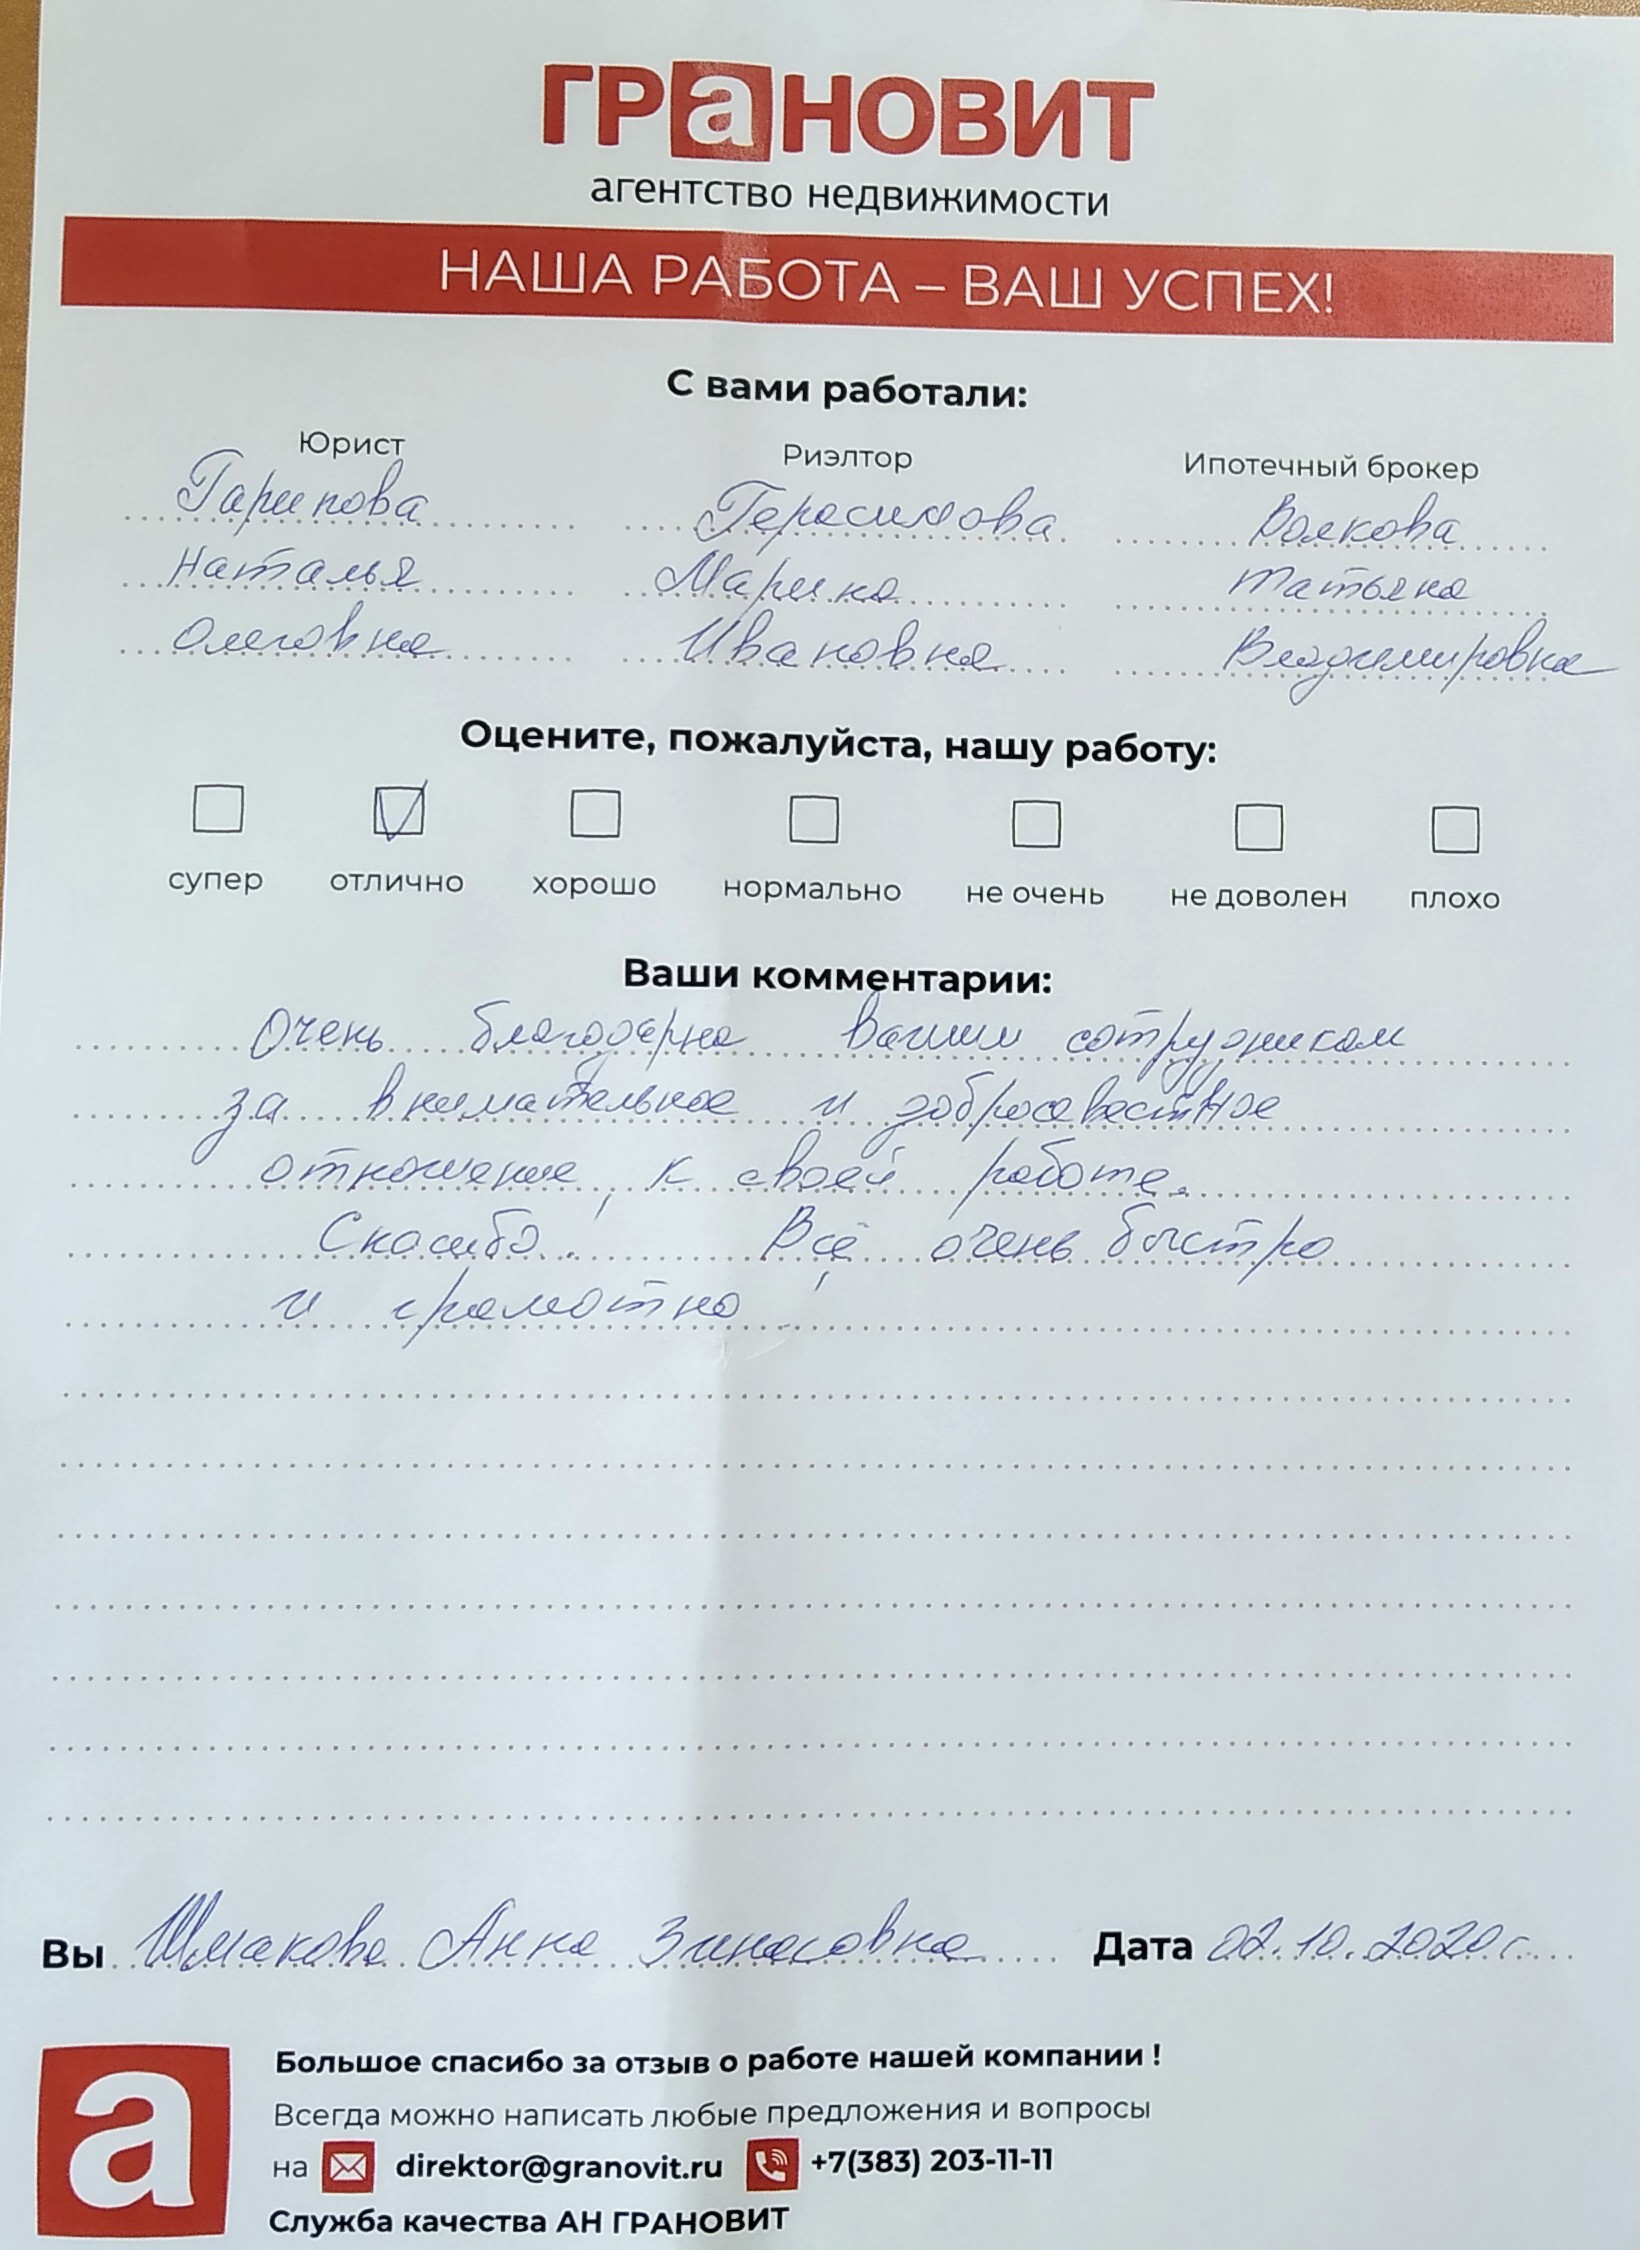 ГРаНОВИТ
агентство недвижимости
НАША РАБОТА – ВАШ УСПЕХ!
С вами работали:
Юрист Риэлтор Ипотечный брокер
Гарипова Герасимова Волкова
Наталья Марина Татьяна
Олеговна Ивановна Владимировна
Оцените, пожалуйста, нашу работу:
супер отлично хорошо нормально не очень не доволен плохо
Ваши комментарии:
Очень благодарна Вашим сотрудникам
за внимательное и добросовестное
отношение, к своей работе.
Спасибо. Всё очень быстро
и грамотно
Вы Шмакова Анна Дата 02.10.2020 г.
а
Большое спасибо за отзыв о работе нашей компании !
Всегда можно написать любые предложения и вопросы
на direktor@granovit.ru +7(383) 203-11-11
Служба качества АН ГРАНОВИТ